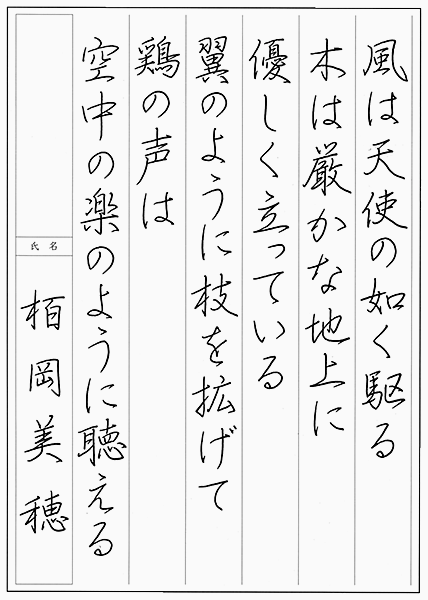 風は天使の如く駆る
木は厳かな地上に
優しく立っている
翼のように枝を拡げて
鶏の声は
空中の楽のように聴える
氏名
栢岡美穂